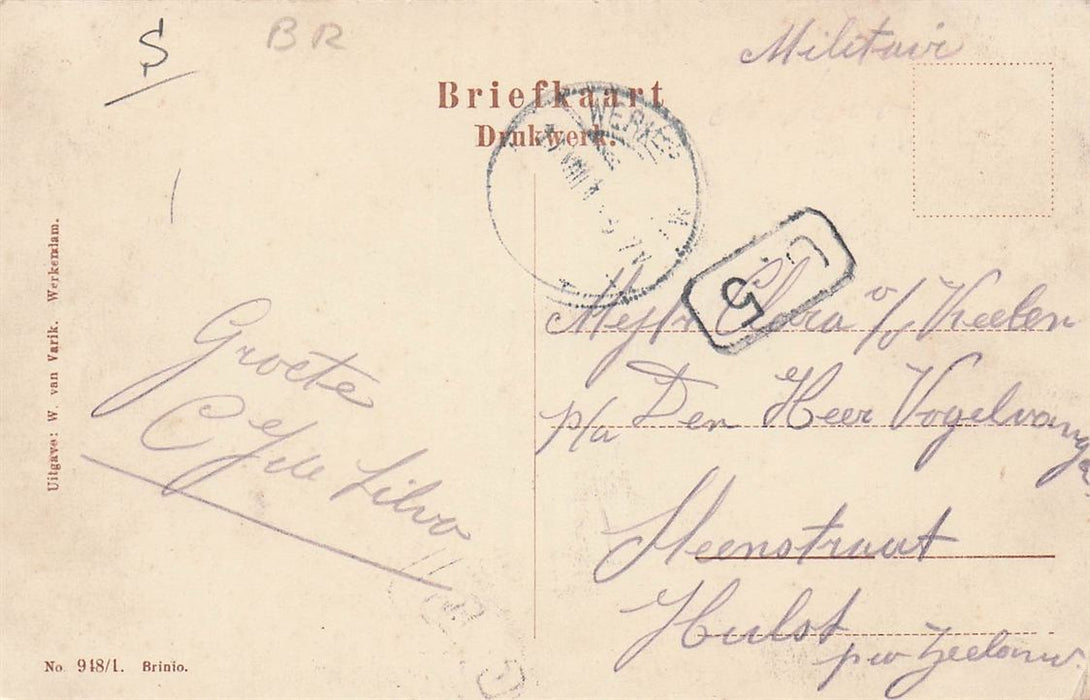 S
BR
Militair
Briefkaart
Drukwerk.
WERKEN
5
Uitgave: W. van Varik. Werkendam.
Groete
C J de Silva
Mejfr Clara v/d
p/a Den Heer Vogelvanger
Steenstraat
Hulst
prov Zeeland
No 948/1. Brinio.